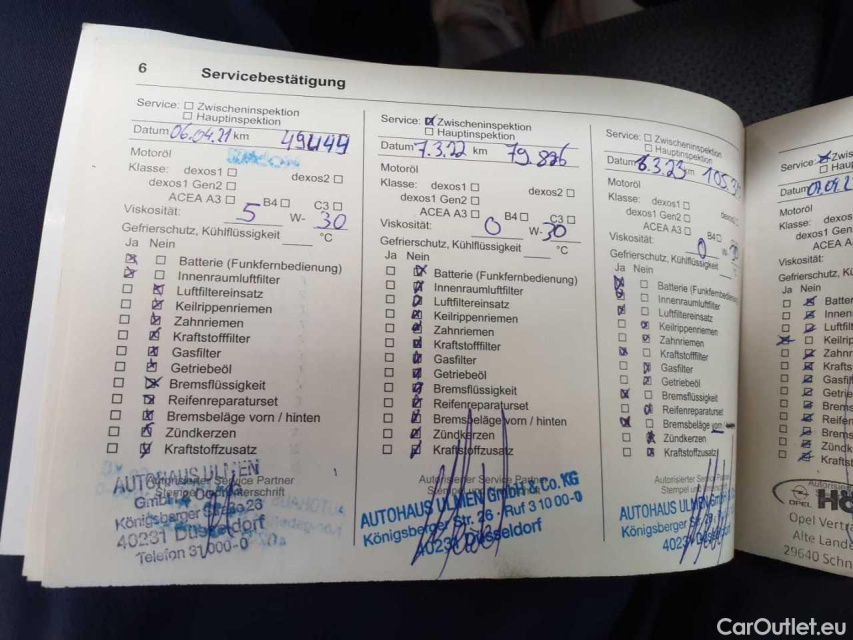 6 Servicebestätigung
Service: ☐ Zwischeninspektion
☐ Hauptinspektion
Datum 06.04.21 km 49449
Motoröl
Klasse: dexos1 ☐ dexos2 ☐
dexos1 Gen2 ☐
ACEA A3 ☐ B4 ☐ C3 ☐
Viskosität: 5 W- 30
Gefrierschutz, Kühlflüssigkeit ____ °C
Ja Nein
☒ ☐ Batterie (Funkfernbedienung)
☒ ☐ Innenraumluftfilter
☐ ☒ Luftfiltereinsatz
☐ ☒ Keilrippenriemen
☐ ☒ Zahnriemen
☐ ☒ Kraftstofffilter
☐ ☒ Gasfilter
☐ ☐ Getriebeöl
☐ ☒ Bremsflüssigkeit
☐ ☒ Reifenreparaturset
☐ ☒ Bremsbeläge vorn / hinten
☐ ☒ Zündkerzen
☐ ☒ Kraftstoffzusatz
Autorisierter Service Partner
AUTOHAUS ULMEN
GmbH & Co.
Königsberger Straße 23
40231 Düsseldorf
Telefon 31/000-0
Service: ☒ Zwischeninspektion
☐ Hauptinspektion
Datum 7.3.22 km 79.826
Motoröl
Klasse: dexos1 ☐ dexos2 ☐
dexos1 Gen2 ☐
ACEA A3 ☐ B4 ☐ C3 ☐
Viskosität: 0 W- 30
Gefrierschutz, Kühlflüssigkeit ____ °C
Ja Nein
☐ ☒ Batterie (Funkfernbedienung)
☐ ☒ Innenraumluftfilter
☐ ☒ Luftfiltereinsatz
☐ ☒ Keilrippenriemen
☐ ☒ Zahnriemen
☐ ☒ Kraftstofffilter
☐ ☒ Gasfilter
☐ ☒ Getriebeöl
☐ ☒ Bremsflüssigkeit
☐ ☒ Reifenreparaturset
☐ ☒ Bremsbeläge vorn / hinten
☐ ☒ Zündkerzen
☐ ☒ Kraftstoffzusatz
Autorisierter Service Partner
AUTOHAUS ULMEN GmbH & Co. KG
Königsberger Str. 26 · Ruf 3 10 00-0
40231 Düsseldorf
Service: ☐ Zwischeninspektion
☐ Hauptinspektion
Datum 6.3.23 km 105.3
Motoröl
Klasse: dexos1 ☐
dexos1 Gen2 ☐
ACEA A3 ☐ B4 ☐
Viskosität: 0 W-
Gefrierschutz, Kühlflüssigkeit
Ja Nein
☒ ☐ Batterie (Funkfernbedie
☒ ☐ Innenraumluftfilter
☒ ☐ Luftfiltereinsatz
☐ ☒ Keilrippenriemen
☐ ☒ Zahnriemen
☒ ☐ Kraftstofffilter
☐ ☒ Gasfilter
☐ ☒ Getriebeöl
☒ ☐ Bremsflüssigkeit
☐ ☒ Reifenreparaturset
☒ ☐ Bremsbeläge vorn
☐ ☒ Zündkerzen
☐ ☒ Kraftstoffzusatz
Autorisierter Service
Stempel
AUTOHAUS ULMEN
Königsberger Str.
40231
Service: ☒ Zwis
☐ Hau
Datum
Motoröl
Klasse: dexos
dexos1 Gen
ACEA A
Viskosität:
Gefrierschutz, Kü
Ja Nein
☐ ☒ Batter
☐ ☒ Innen
☐ ☒ Luftfil
☒ ☐ Keilrip
☐ ☒ Zahnr
☐ ☒ Krafts
☐ ☒ Gasfil
☐ ☒ Getrie
☐ ☒ Brems
☐ ☒ Reifen
☐ ☒ Brems
☐ ☒ Zündk
☐ ☒ Kraftst
OPEL
Opel Vertra
Alte Lande
29640 Schn
CarOutlet.eu